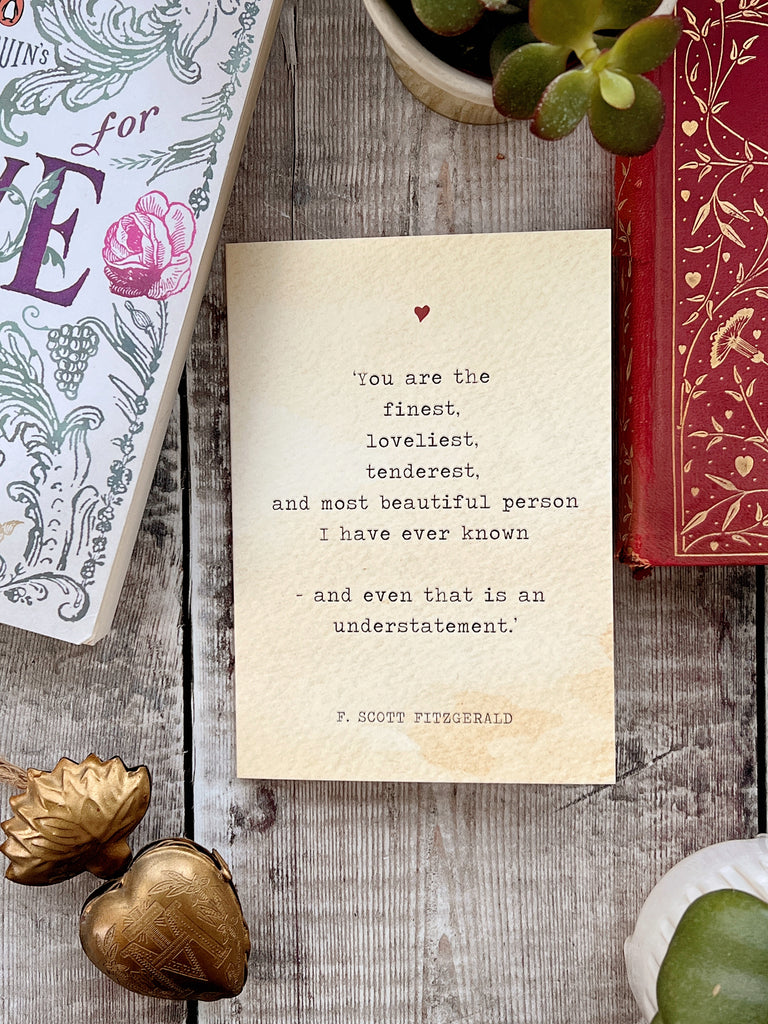 UIN's
for
VE
'You are the
finest,
loveliest,
tenderest,
and most beautiful person
I have ever known
- and even that is an
understatement.'
F. SCOTT FITZGERALD